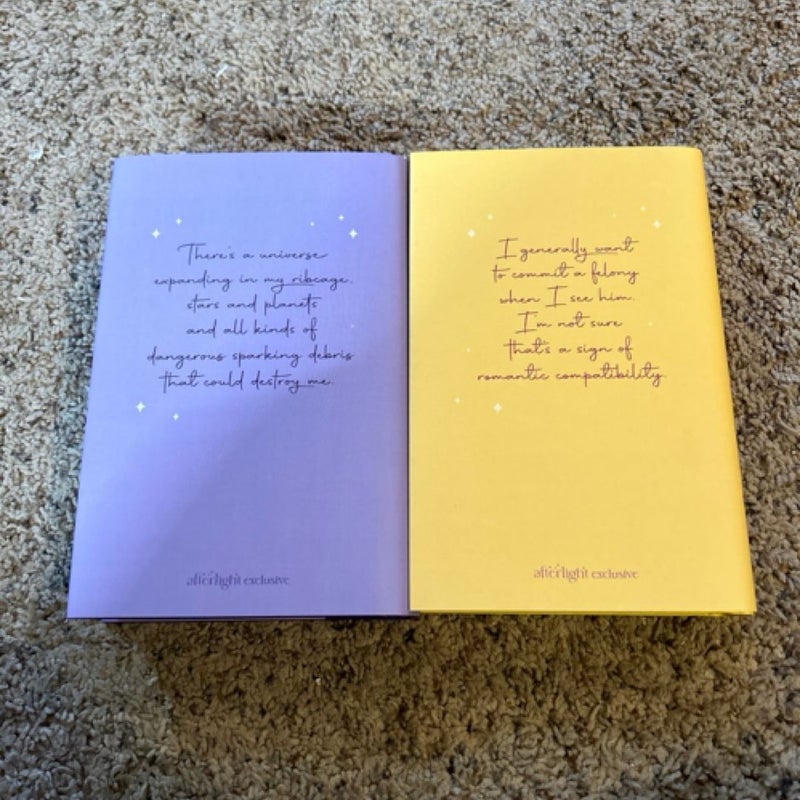 There's a universe
expanding in my ribcage,
stars and planets
and all kinds of
dangerous sparking debris
that could destroy me.
afterlight exclusive
I generally want
to commit a felony
when I see him.
I'm not sure
that's a sign of
romantic compatibility.
afterlight exclusive